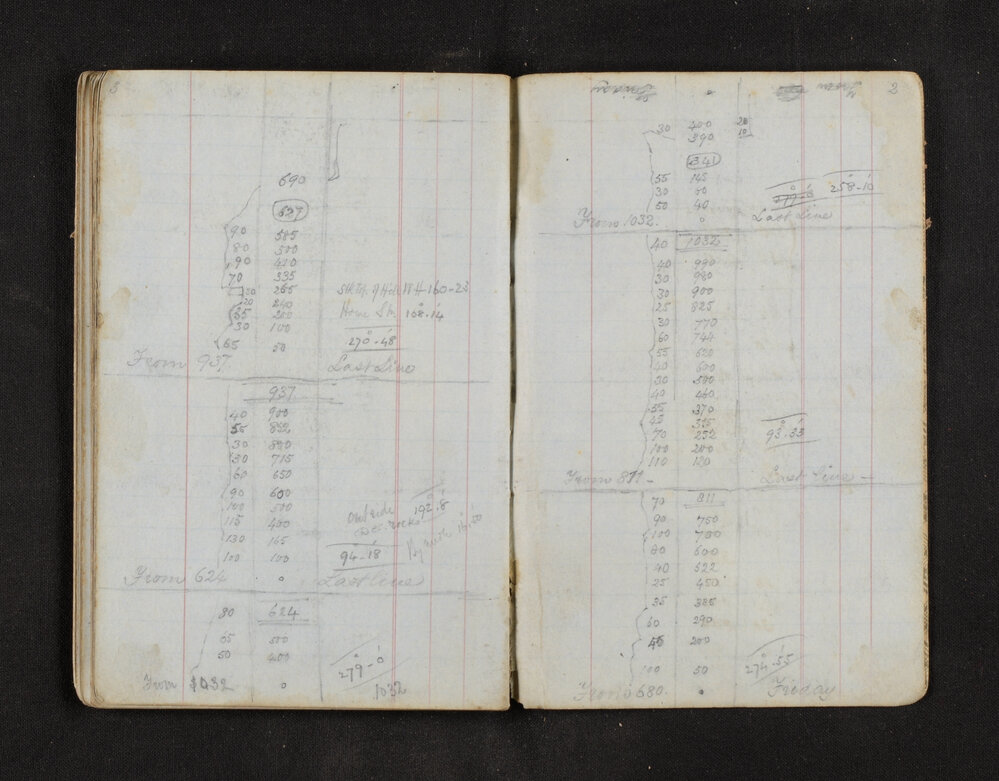 3
690
627
90 585
80 500
90 410
70 335
265
20 240
35 200
30 100
65 50
Home Stn 168.14
270-48
From 937 Last Line
937
40 900
55 852
30 820
30 715
60 650
90 600
100 500
115 400
130 165
100 100
Outside
192.8
94-18
From 624 0 Last line
80 624
65 500
50 400
279-0
From 1032 0
1032
2
30 400 20
390 10
341
55 145
30 60
50 40
258-10
From 1032. 0 Last Line
40 1032
40 990
30 980
30 900
25 825
30 770
60 744
55 620
40 600
30 500
40 460
55 370
45 315
70 252
100 200
110 120
93.33
From 811 - Last line -
70 811
90 750
100 700
80 600
40 522
25 450
35 385
60 290
45 200
100 50
274.55
From 680. 0 Friday